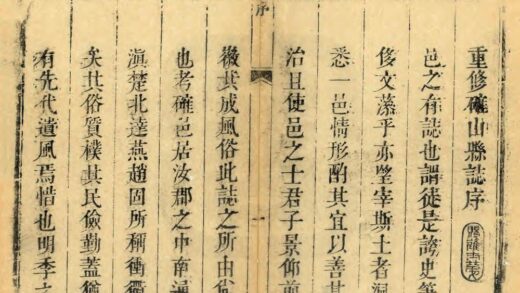 重修確山縣誌序
邑之有誌也謂徒是誇史筆
侈文藻乎亦望宰斯土者洞
悉一邑情形酌其宜以善其
治且使邑之士君子景仰前
序
徽共成風俗此誌之所由
也考確邑居汝郡之中南通
滇楚北達燕趙固所稱衝衢
矣其俗質樸其民儉勤蓋猶
有先代遺風焉惜也明季之